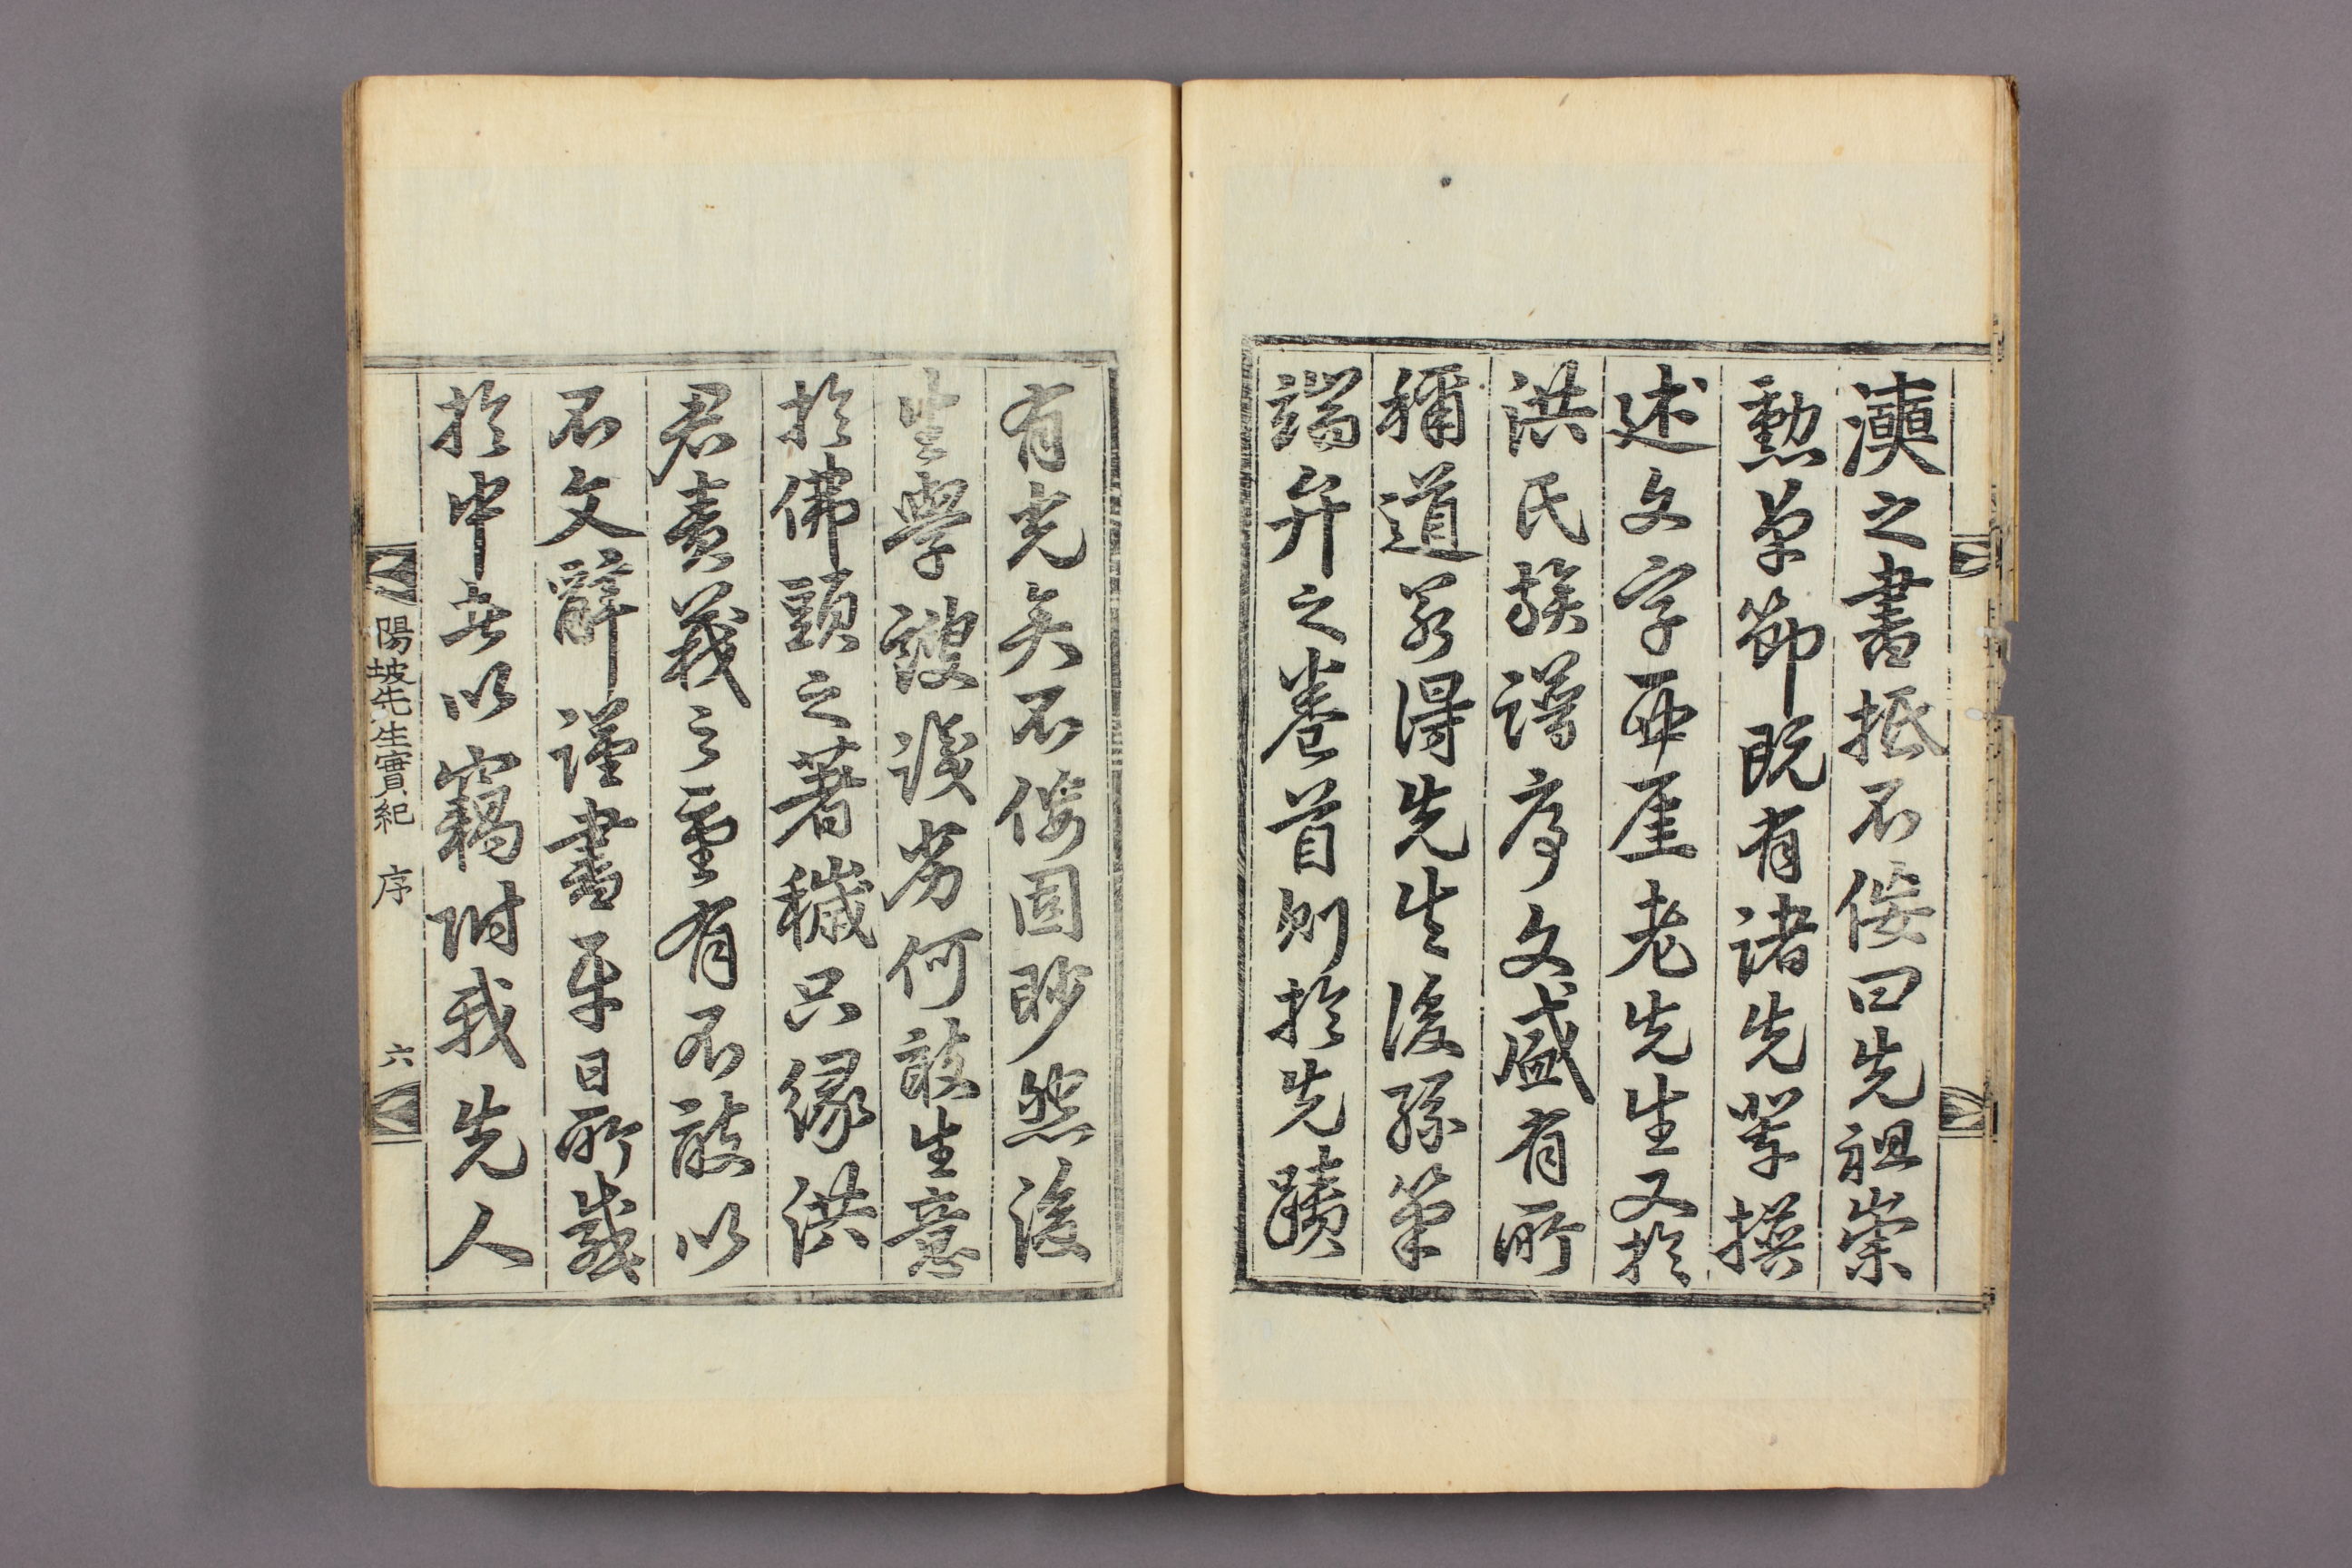 漢之書抵不佞曰先祖崇
勲卓節既有諸先輩撰
述文字西厓老先生又於
洪氏族譜序文盛有所
稱道若得先生後孫筆
端弁之卷首則於先蹟
有光矣不佞固眇然後
生學謏識劣何敢生意
於佛頭之著穢只緣洪
君責義之重有不敢以
不文辭謹書平日所感
於中者以竊附我先人
陽坡先生實紀 序 六